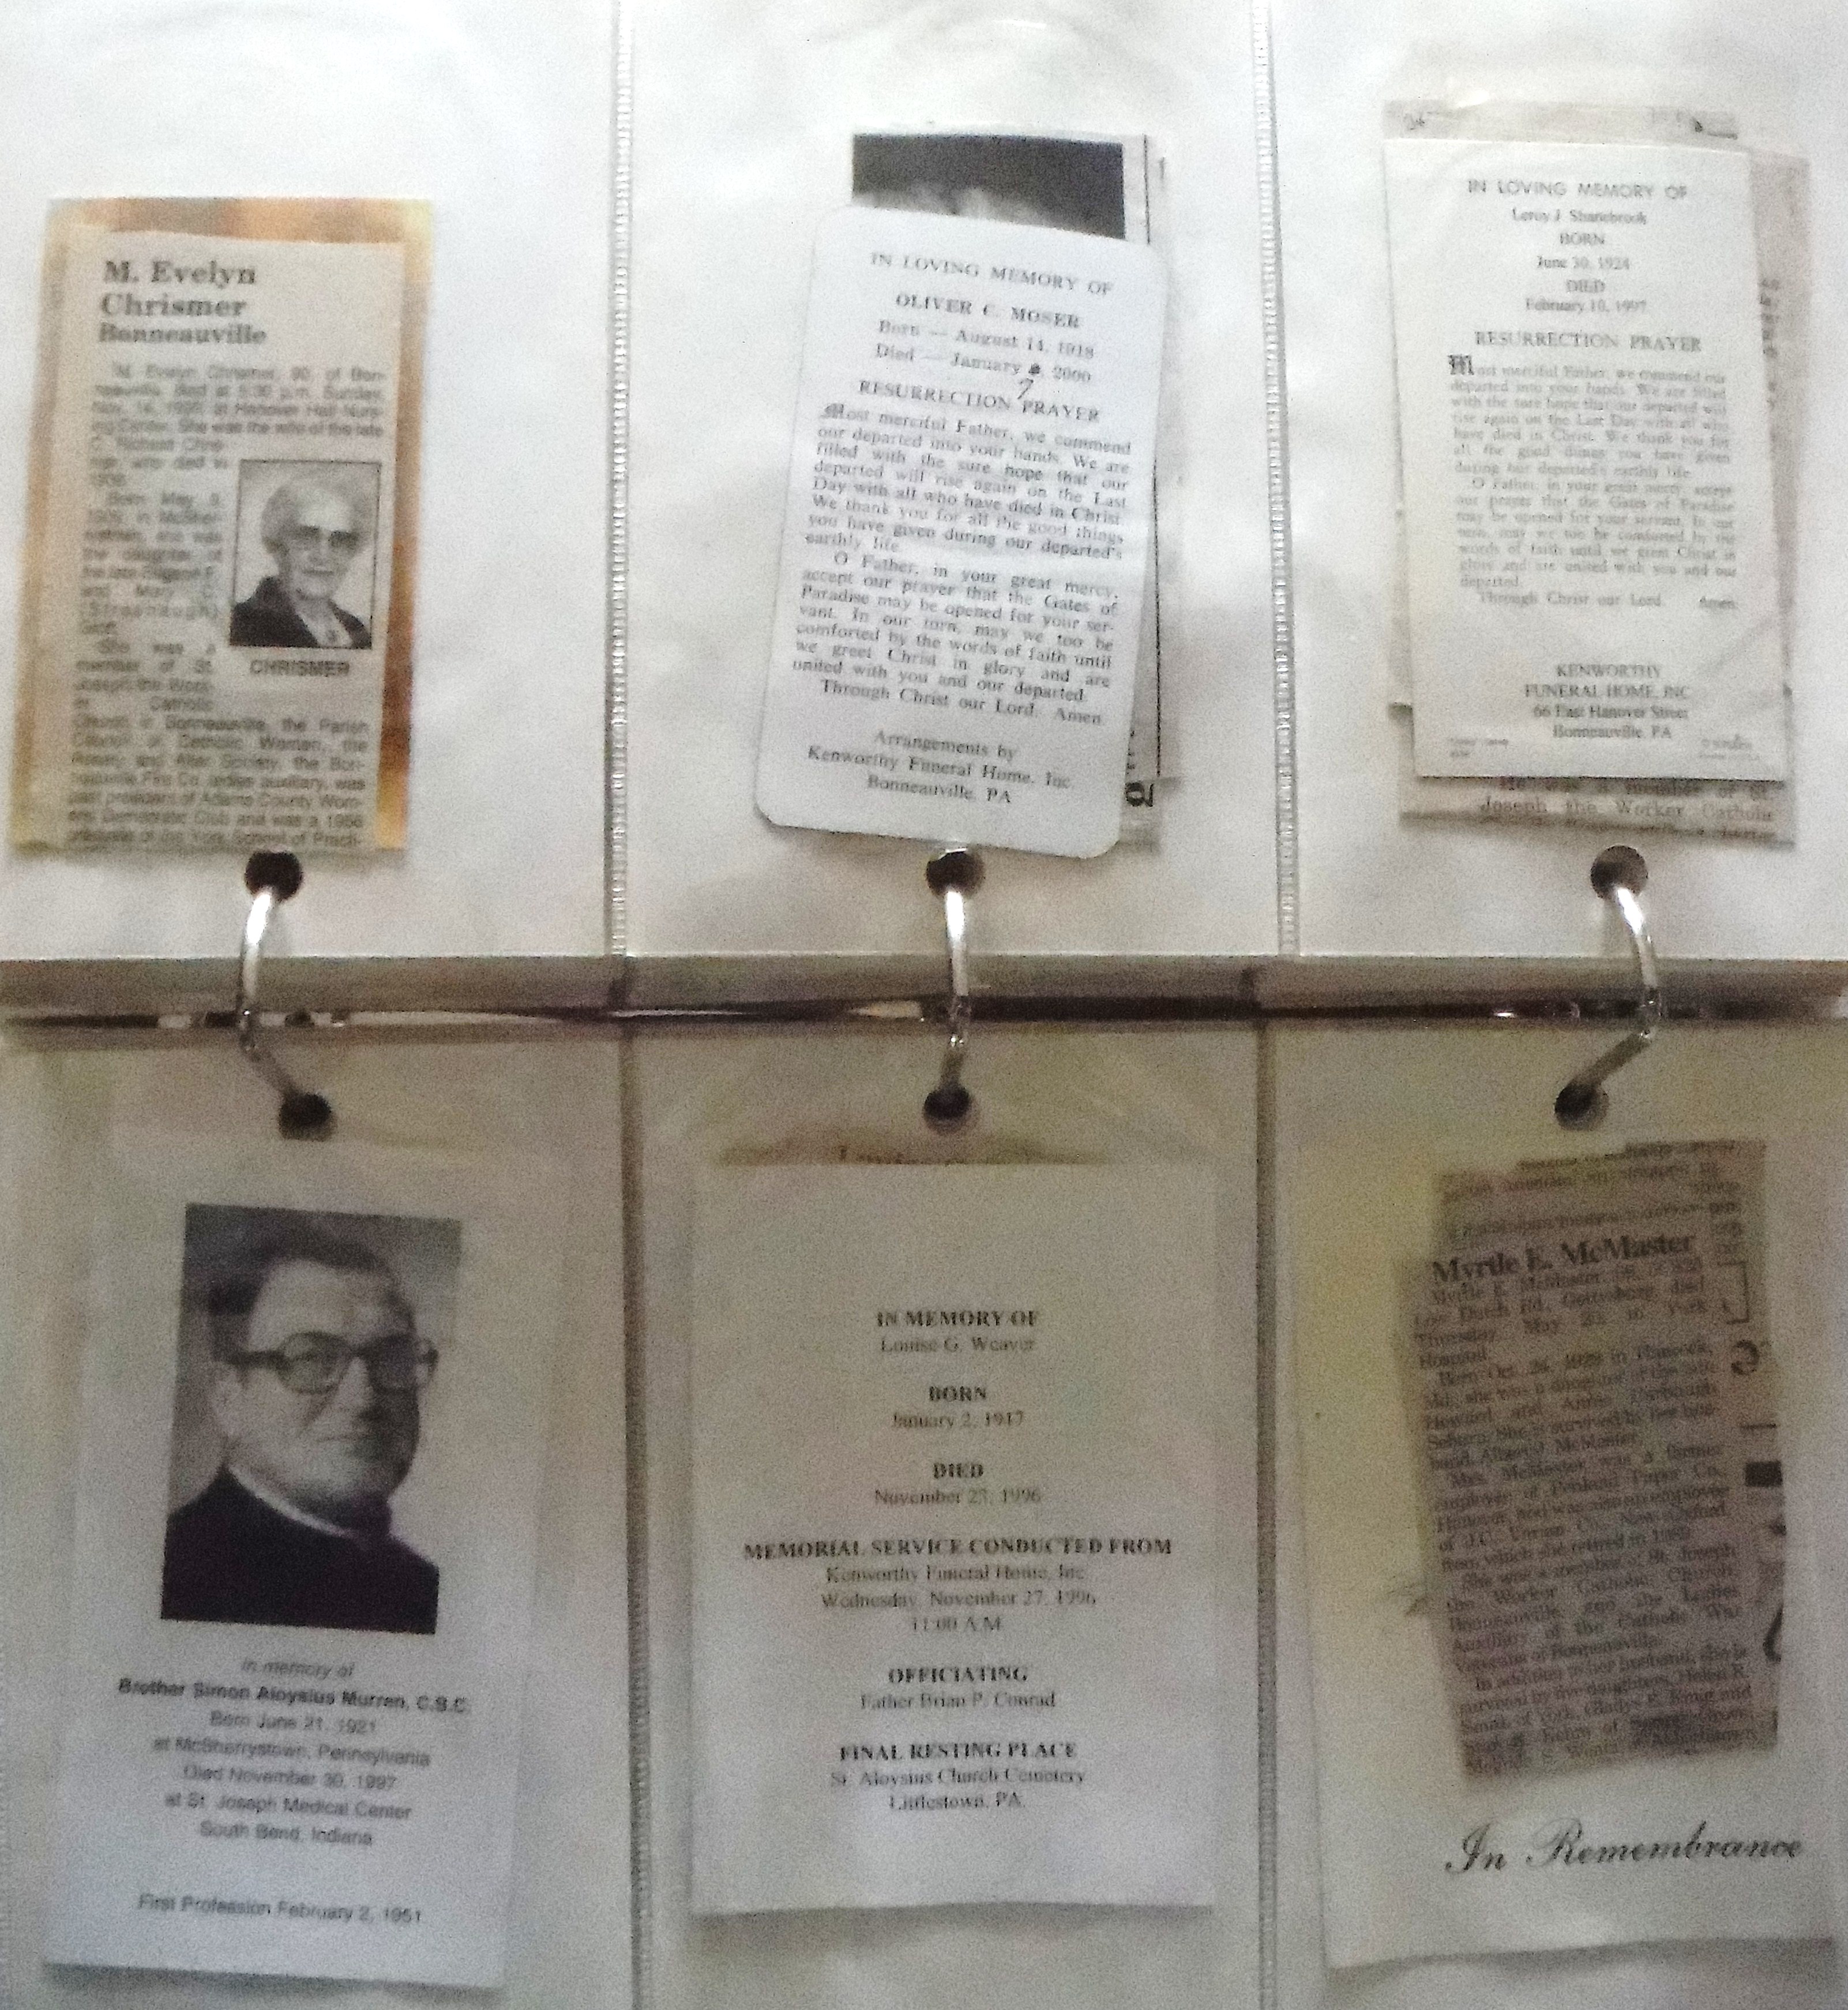 M. Evelyn
Chrismer
Bonneauville
M. Evelyn Chrismer, 90, of Bon-
neauville, died at 5:30 p.m. Sunday,
Nov. 14, at Hanover Hall Nurs-
ing Center. She was the wife of the late
C. Robert Chris-
mer, who died in
Born May 9,
in McSher-
rystown, she was
the daughter of
the late Eugene F.
and Mary C.
She was a
member of St.
Joseph the Work-
er Catholic
Church in Bonneauville, the Parish
Council of Catholic Women, the
Rosary and Altar Society, the Bon-
neauville Fire Co. ladies auxiliary, was
past president of Adams County Wom-
ens Democratic Club and was a 1956
graduate of the York School of Practi-
CHRISMER
IN LOVING MEMORY OF
OLIVER C. MOSER
Born — August 14, 1918
Died — January 7, 2000
RESURRECTION PRAYER
Most merciful Father, we commend
our departed into your hands. We are
filled with the sure hope that our
departed will rise again on the Last
Day with all who have died in Christ.
We thank you for all the good things
you have given during our departed's
earthly life.
O Father, in your great mercy,
accept our prayer that the Gates of
Paradise may be opened for your ser-
vant. In our turn, may we too be
comforted by the words of faith until
we greet Christ in glory and are
united with you and our departed.
Through Christ our Lord. Amen.
Arrangements by
Kenworthy Funeral Home, Inc.
Bonneauville, PA
IN LOVING MEMORY OF
Leroy J. Shanebrook
BORN
June 30, 1924
DIED
February 10, 1997
RESURRECTION PRAYER
Most merciful Father, we commend our
departed into your hands. We are filled
with the sure hope that our departed will
rise again on the Last Day with all who
have died in Christ. We thank you for
all the good things you have given
during our departed's earthly life.
O Father, in your great mercy, accept
our prayer that the Gates of Paradise
may be opened for your servant. In our
turn, may we too be comforted by the
words of faith until we greet Christ in
glory and are united with you and our
departed.
Through Christ our Lord. Amen.
KENWORTHY
FUNERAL HOME, INC
66 East Hanover Street
Bonneauville, PA
He was a member of St.
Joseph the Worker Catholic
in memory of
Brother Simon Aloysius Murren, C.S.C.
Born June 21, 1921
at McSherrystown, Pennsylvania
Died November 30, 1997
at St. Joseph Medical Center
South Bend, Indiana
First Profession February 2, 1951
IN MEMORY OF
Louise G. Weaver
BORN
January 2, 1917
DIED
November 23, 1996
MEMORIAL SERVICE CONDUCTED FROM
Kenworthy Funeral Home, Inc.
Wednesday, November 27, 1996
11:00 A.M.
OFFICIATING
Father Brian P. Conrad
FINAL RESTING PLACE
St. Aloysius Church Cemetery
Littlestown, PA.
Myrtle E. McMaster
Myrtle E. McMaster, of
Low Dutch Rd., Gettysburg, died
Thursday, May in York
Hospital.
Born Oct. in Hancock,
Md., she was a daughter of the late
Howard and Annie
She is survived by her hus-
band, Albert McMaster.
Mrs. McMaster was a former
employee of Penland Paper Co.,
Hanover, and was also an employee
of New Oxford,
from which she retired in
She was a member of St. Joseph
the Worker Catholic Church,
Bonneauville, and the Ladies
Auxiliary of the Catholic War
Veterans of Bonneauville.
In addition to her husband, she is
survived by five daughters, Helen R.
Smith of York,
In Remembrance